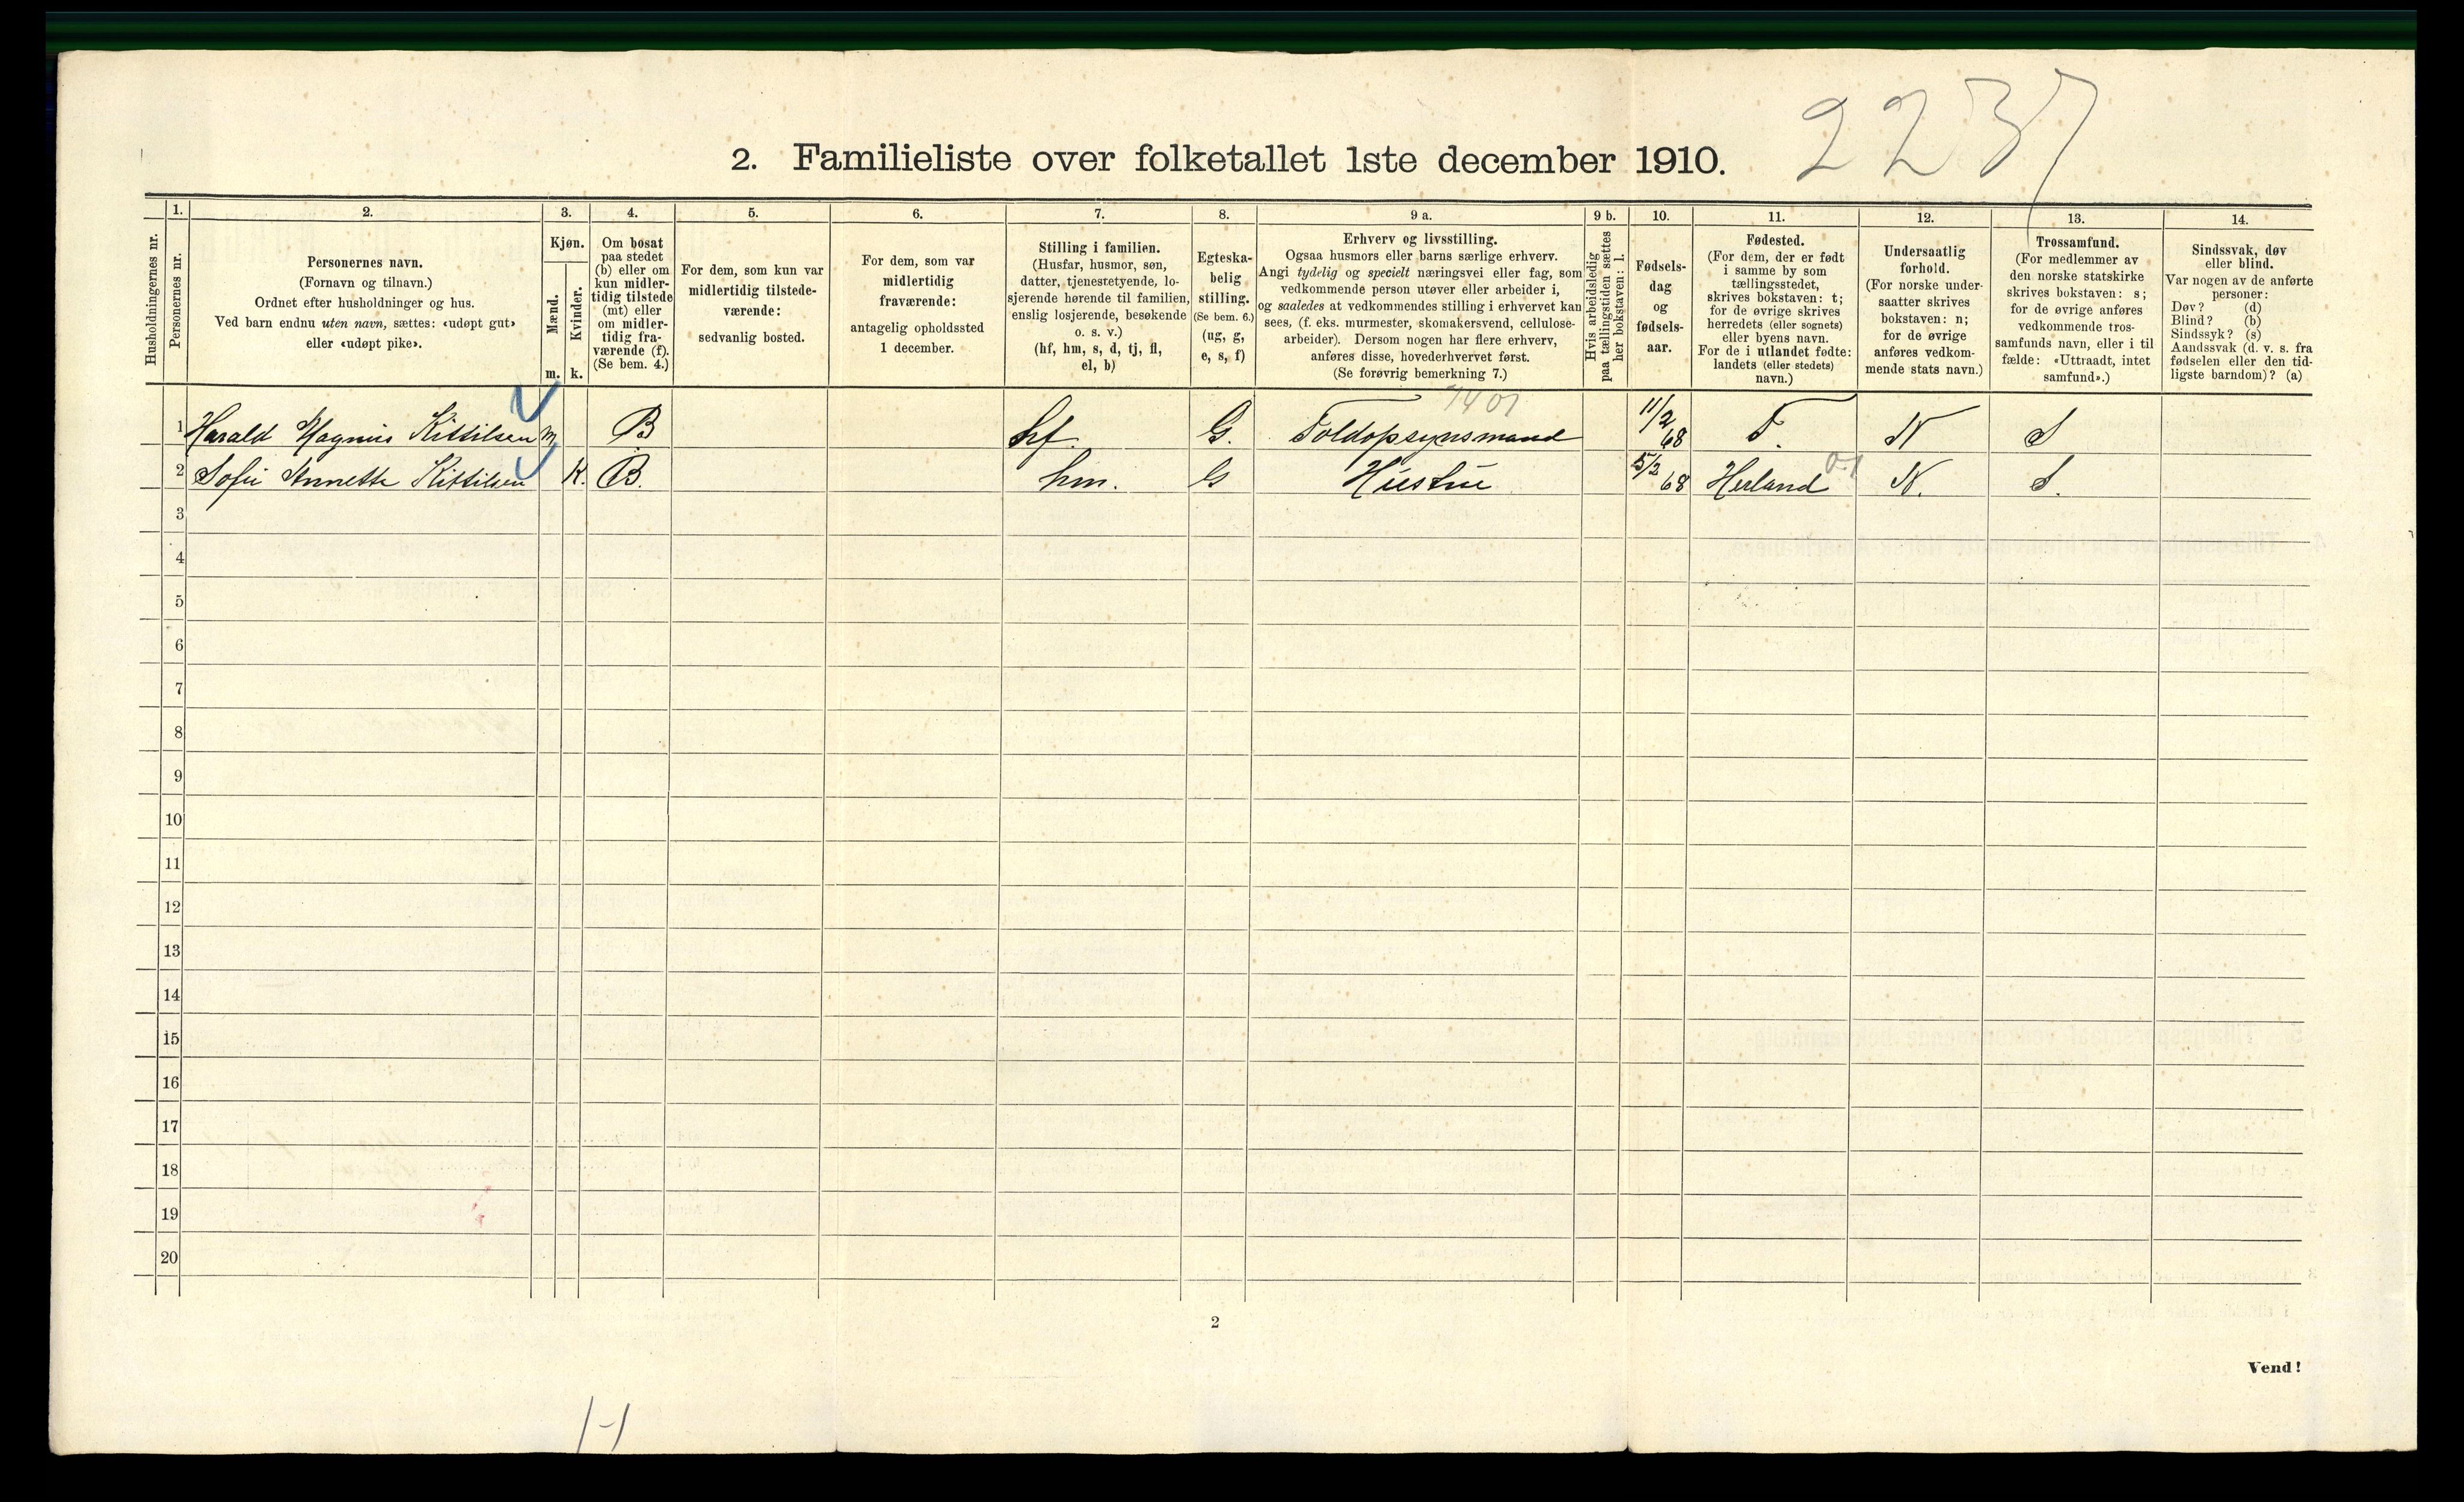 2237
2. Familieliste over folketallet 1ste december 1910.
Husholdningernes nr.
1.
Personernes nr.
2.
Personernes navn.
(Fornavn og tilnavn.)
Ordnet efter husholdninger og hus.
Ved barn endnu uten navn, sættes: «udøpt gut»
eller «udøpt pike».
3.
Kjøn.
Mænd.
m.
Kvinder.
k.
4.
Om bosat
paa stedet
(b) eller om
kun midler-
tidig tilstede
(mt) eller
om midler-
tidig fra-
værende (f).
(Se bem. 4.)
5.
For dem, som kun var
midlertidig tilstede-
værende:
sedvanlig bosted.
6.
For dem, som var
midlertidig
fraværende:
antagelig opholdssted
1 december.
7.
Stilling i familien.
(Husfar, husmor, søn,
datter, tjenestetyende, lo-
sjerende hørende til familien,
enslig losjerende, besøkende
o. s. v.)
(hf, hm, s, d, tj, fl,
el, b)
8.
Egteska-
belig
stilling.
(Se bem. 6.)
(ug, g,
e, s, f)
9 a.
Erhverv og livsstilling.
Ogsaa husmors eller barns særlige erhverv.
Angi tydelig og specielt næringsvei eller fag, som
vedkommende person utøver eller arbeider i,
og saaledes at vedkommendes stilling i erhvervet kan
sees, (f. eks. murmester, skomakersvend, cellulose-
arbeider). Dersom nogen har flere erhverv,
anføres disse, hovederhvervet først.
(Se forøvrig bemerkning 7.)
9 b.
Hvis arbeidsledig
paa tællingstiden sættes
her bokstaven: l.
10.
Fødsels-
dag
og
fødsels-
aar.
11.
Fødested.
(For dem, der er født
i samme by som
tællingsstedet,
skrives bokstaven: t;
for de øvrige skrives
herredets (eller sognets)
eller byens navn.
For de i utlandet fødte:
landets (eller stedets)
navn.)
12.
Undersaatlig
forhold.
(For norske under-
saatter skrives
bokstaven: n;
for de øvrige
anføres vedkom-
mende stats navn.)
13.
Trossamfund.
(For medlemmer av
den norske statskirke
skrives bokstaven: s;
for de øvrige anføres
vedkommende tros-
samfunds navn, eller i til
fælde: «Uttraadt, intet
samfund».)
14.
Sindssvak, døv
eller blind.
Var nogen av de anførte
personer:
Døv? (d)
Blind? (b)
Sindssyk? (s)
Aandssvak (d. v. s. fra
fødselen eller den tid-
ligste barndom)? (a)
1 Harald Magnus Kittilsen m B hf. G. Toldopsynsmand 11/2 68 T. N S
2 Sofie Annette Kittilsen K. B. hm. G Hustru 5/2 68 Herland N. S.
3
4
5
6
7
8
9
10
11
12
13
14
15
16
17
18
19
20
2
Vend!